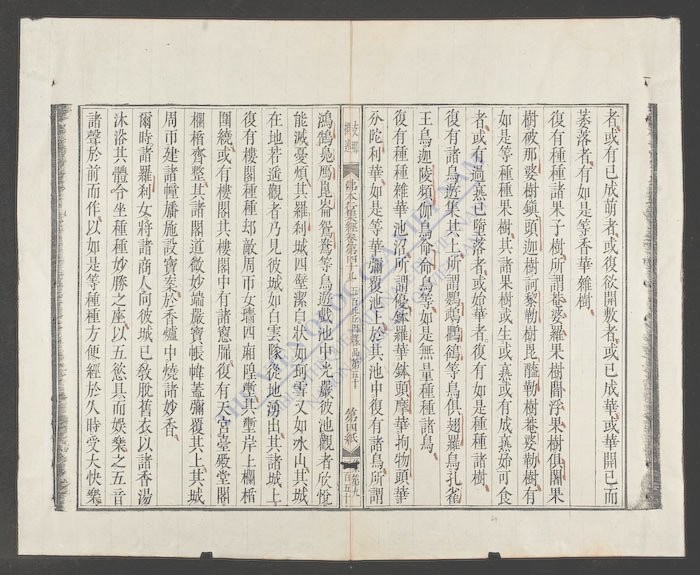 者或有已成萌者或復欲開敷者或已成華或華開已而
萎落者有如是等香華雜樹
復有種種諸果子樹所謂菴婆羅果樹閻浮果樹俱闍果
樹破那婆樹鎮頭迦樹訶黎勒樹毘醯勒樹菴婆勒樹有
如是等種種果樹其諸果樹或生或熹或有成熹始可食
者或有過熹已墮落者或始華者復有如是種種諸樹
復有諸鳥遊集其上所謂鸚鵡鸜鵒等鳥俱翅羅鳥孔雀
王鳥迦陵頻伽鳥命命鳥等如是無量種種諸鳥
復有種種雜華池沼所謂優鉢羅華鉢頭摩華拘物頭華
分陀利華如是等華彌覆池上於其池中復有諸鳥所謂
佛本行集經卷第四十九 五百比丘因緣品第五十 第四紙
鴻鶴鳧鴈崑崙鴛鴦等鳥遊戲池中光嚴彼池觀者欣悅
能滅憂煩其羅利城四壁潔白狀如珂雪又如氷山其城
在地若遥觀者乃見彼城如白雲隊從地湧出其諸城上
復有樓閣種種却敵周帀女墻四廂隍壍其壍岸上欄楯
圍繞或有樓閣其樓閣中有諸窓牖復有天宮臺殿堂閣
欄楯齊整其諸閣道微妙端嚴寶帳幃蓋彌覆其上其城
周帀建諸幢旛施設寶案於香爐中燒諸妙香
爾時諸羅剎女將諸商人向彼城已敎脫舊衣以諸香湯
沐浴其體令坐種種妙勝之座以五慾具而娛樂之五音
諸聲於前而作以如是等種種方便經於久時受大快樂